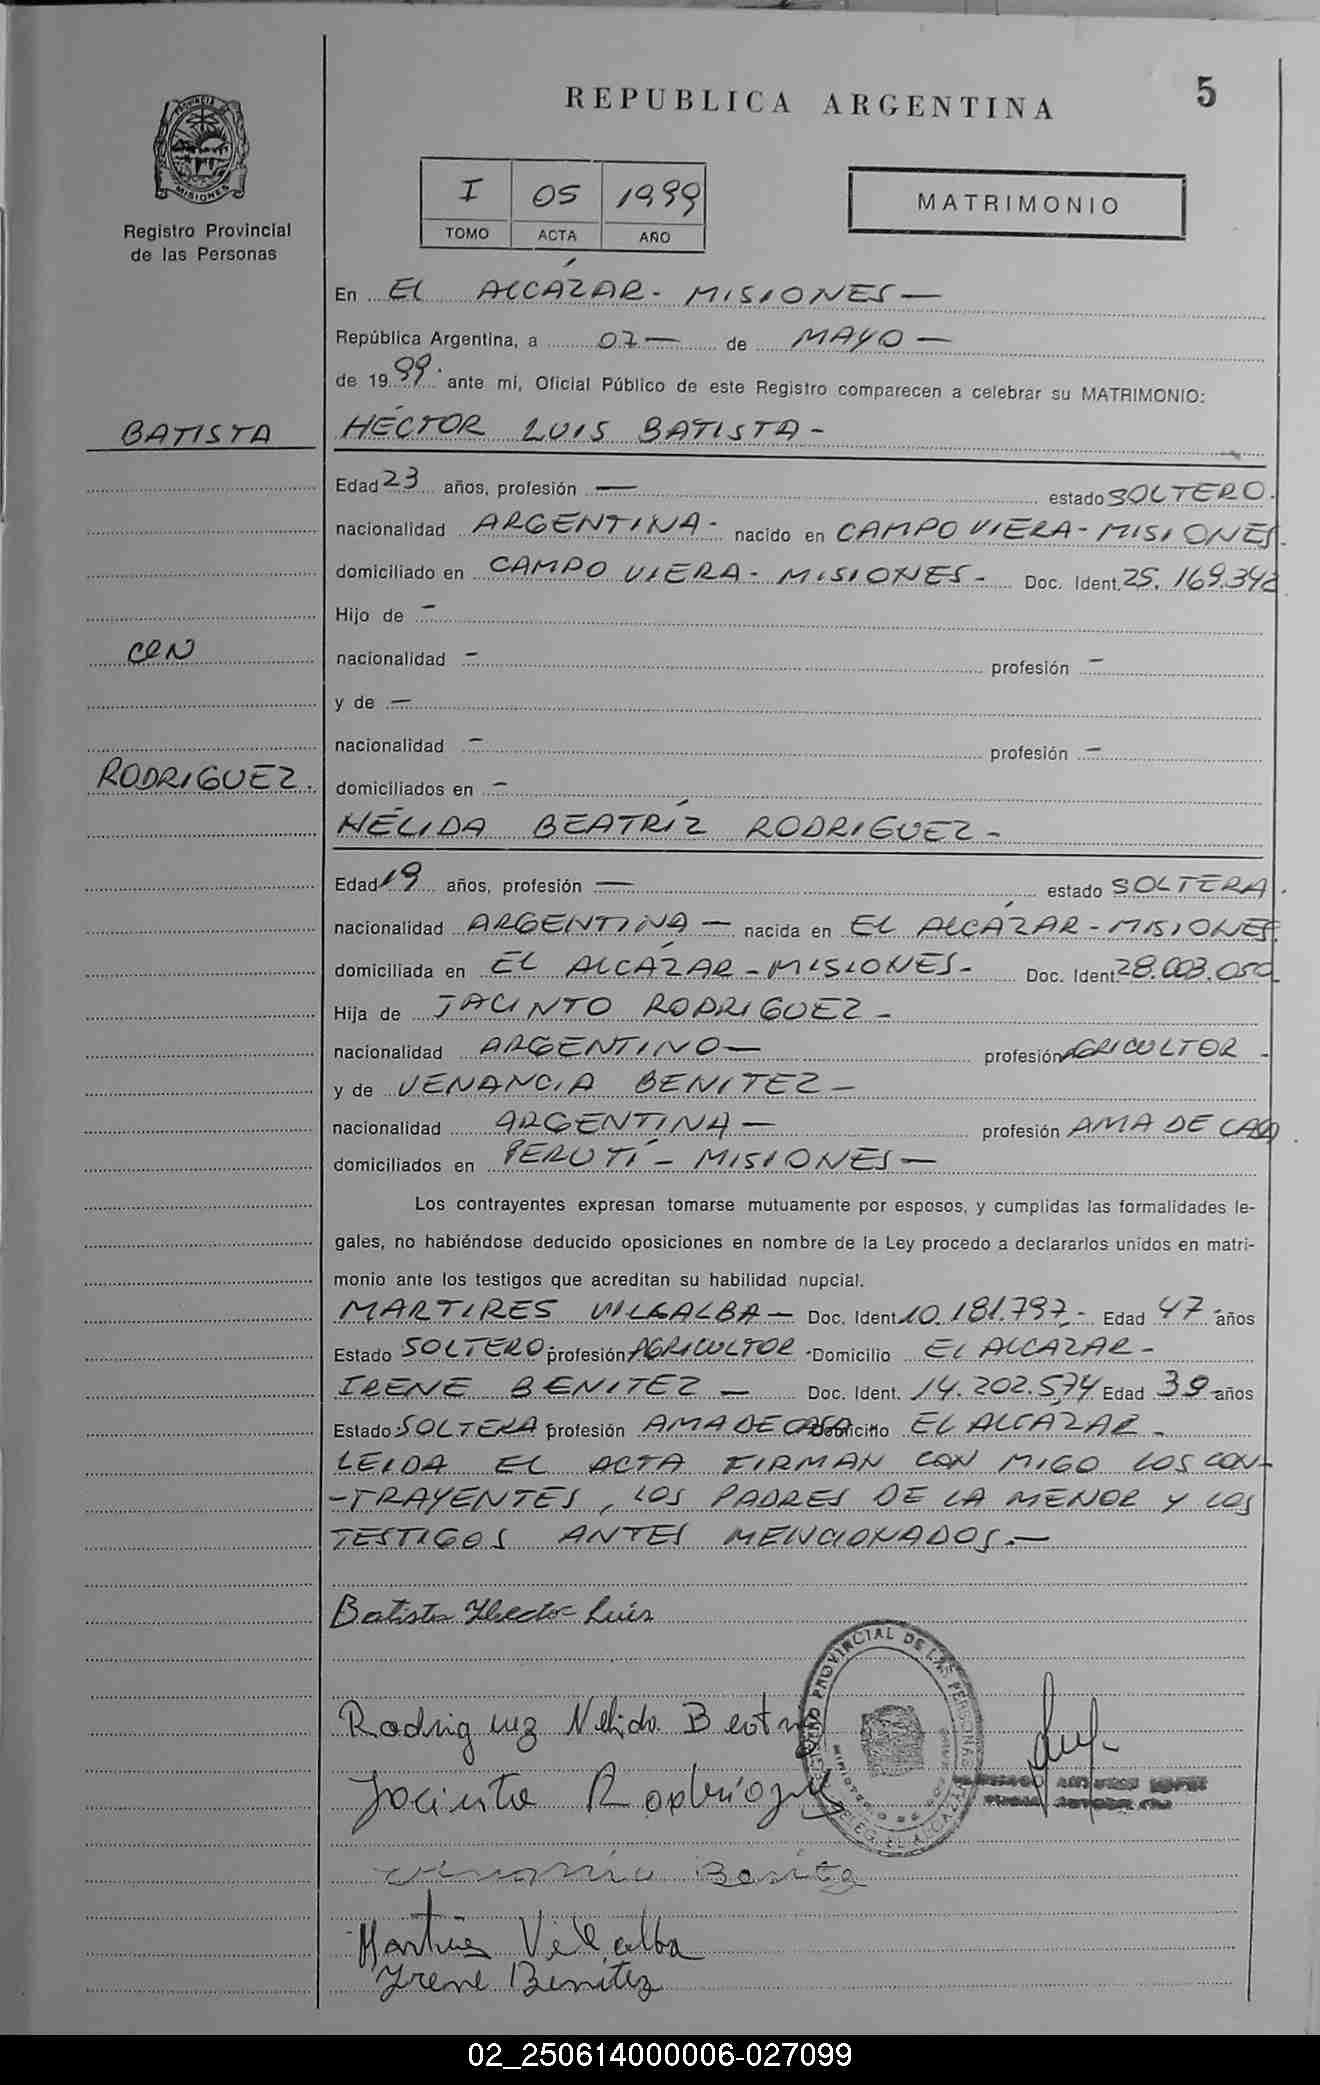 REPUBLICA ARGENTINA
5
PROVINCIA DE
MISIONES
Registro Provincial
de las Personas
I 05 1999
TOMO ACTA AÑO
MATRIMONIO
En EL ALCÁZAR - MISIONES —
República Argentina, a 07 — de MAYO —
de 1999. ante mí, Oficial Público de este Registro comparecen a celebrar su MATRIMONIO:
BATISTA
HÉCTOR LUIS BATISTA -
Edad 23 años, profesión — estado SOLTERO.
nacionalidad ARGENTINA - nacido en CAMPO VIERA - MISIONES.
domiciliado en CAMPO VIERA - MISIONES - Doc. Ident. 25.169.342
Hijo de -
CON
nacionalidad - profesión -
y de —
nacionalidad - profesión -
RODRIGUEZ.
domiciliados en -
NÉLIDA BEATRÍZ RODRIGUEZ -
Edad 19 años, profesión — estado SOLTERA.
nacionalidad ARGENTINA — nacida en EL ALCÁZAR - MISIONES.
domiciliada en EL ALCÁZAR - MISIONES - Doc. Ident. 28.003.050
Hija de JACINTO RODRIGUEZ -
nacionalidad ARGENTINO — profesión AGRICULTOR -
y de VENANCIA BENITEZ -
nacionalidad ARGENTINA — profesión AMA DE CASA.
domiciliados en PERUTÍ - MISIONES —
Los contrayentes expresan tomarse mutuamente por esposos, y cumplidas las formalidades le-
gales, no habiéndose deducido oposiciones en nombre de la Ley procedo a declararlos unidos en matri-
monio ante los testigos que acreditan su habilidad nupcial.
MARTIRES VILLALBA — Doc. Ident. 10.181.797 - Edad 47 - años
Estado SOLTERO profesión AGRICULTOR - Domicilio EL ALCÁZAR -
IRENE BENITEZ — Doc. Ident. 14.202.574 Edad 39 - años
Estado SOLTERA profesión AMA DE CASA Domicilio EL ALCÁZAR -
LEIDA EL ACTA FIRMAN CON MIGO LOS CON-
-TRAYENTES, LOS PADRES DE LA MENOR Y LOS
TESTIGOS ANTES MENCIONADOS. —
Batista Hector Luis
Rodriguez Nelida Beatriz
REGISTRO PROVINCIAL DE LAS PERSONAS
EL ALCAZAR
Jacinto Rodríguez
Benitez
Martires Villalba
Irene Benitez
02_250614000006-027099